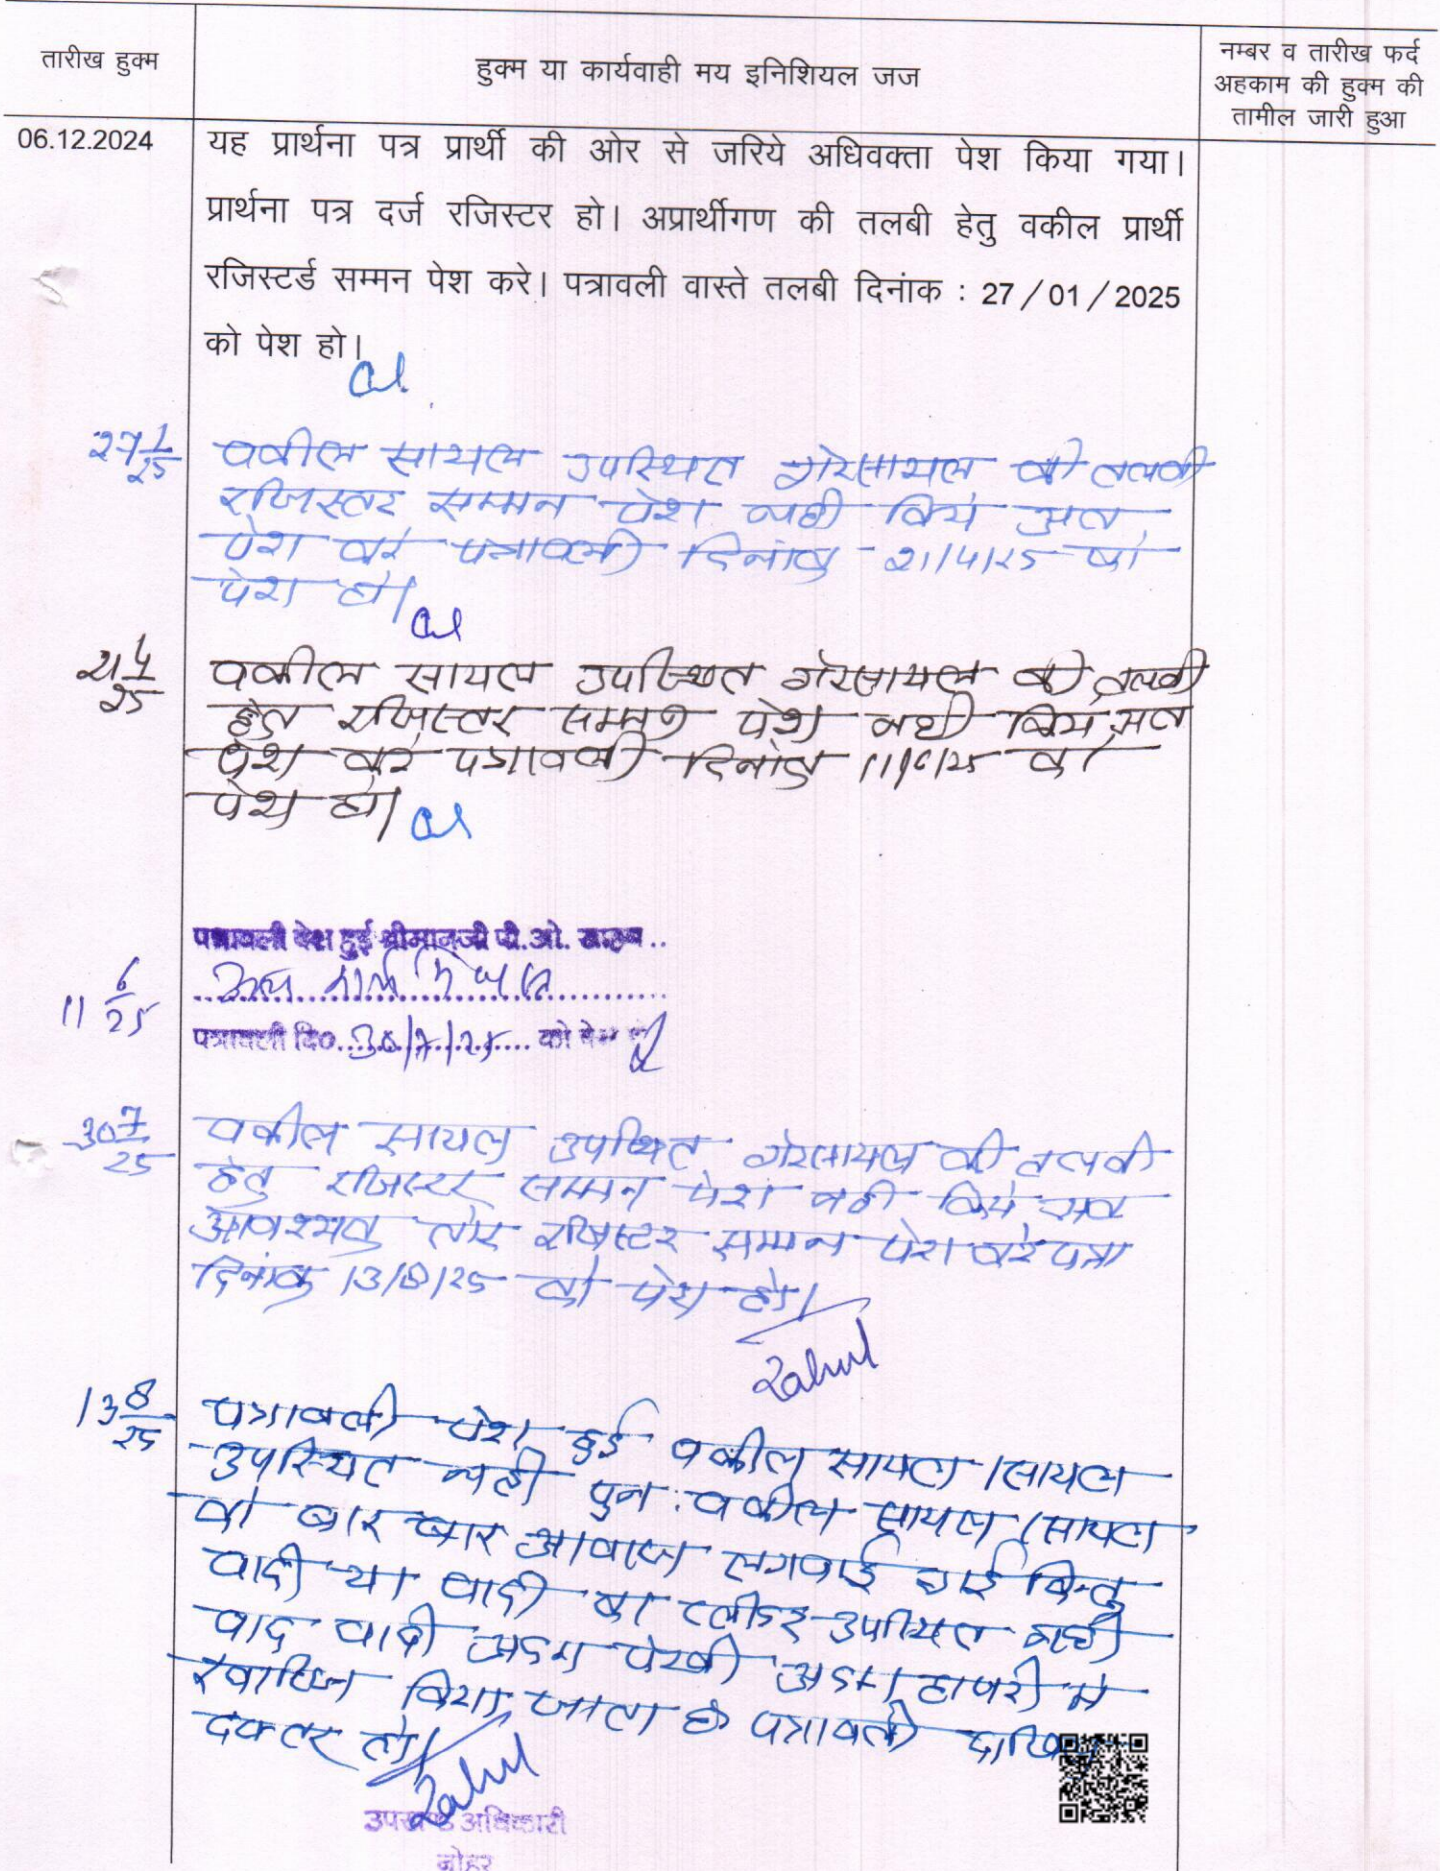 तारीख हुक्म
हुक्म या कार्यवाही मय इनिशियल जज
नम्बर व तारीख फर्द
अहकाम की हुक्म की
तामील जारी हुआ
06.12.2024
यह प्रार्थना पत्र प्रार्थी की ओर से जरिये अधिवक्ता पेश किया गया।
प्रार्थना पत्र दर्ज रजिस्टर हो। अप्रार्थीगण की तलबी हेतु वकील प्रार्थी
रजिस्टर्ड सम्मन पेश करे। पत्रावली वास्ते तलबी दिनांक : 27/01/2025
को पेश हो।
27 1/25
वकील सायल उपस्थित गेरसायल की तलबी
रजिस्टर सम्मन पेश नही किये अत
पेश करे पत्रावली दिनांक 21/4/25 को
पेश हो।
21 4/25
वकील सायल उपस्थित गेरसायल की तलबी
हेतु रजिस्टर सम्मन पेश नही किये अत
पेश करे पत्रावली दिनांक 11/6/25 को
पेश हो।
पत्रावली पेश हुई श्रीमानजी पी.ओ. साहब..
11 6/25
पत्रावली दि०....30/7/25.... को पेश हो
30 7/25
वकील सायल उपस्थित गेरसायल की तलबी
हेतु रजिस्टर सम्मन पेश नही किये अत
आवश्यक तोर रजिस्टर सम्मन पेश करे पत्रा
दिनांक 13/8/25 को पेश हो।
Rahul
13 8/25
पत्रावली पेश हुई वकील सायल/सायल
उपस्थित नही पुन: वकील सायल/सायल
को बार बार आवाज लगवाई गई किन्तु
वादी या वादी का प्लीडर उपस्थित नही
वाद वादी अदम पेरवी अदम हाजरी मे
खारिज किया जाता है पत्रावली दाखिल
दफ्तर हो।
Rahul
उपखण्ड अधिकारी
नोहर